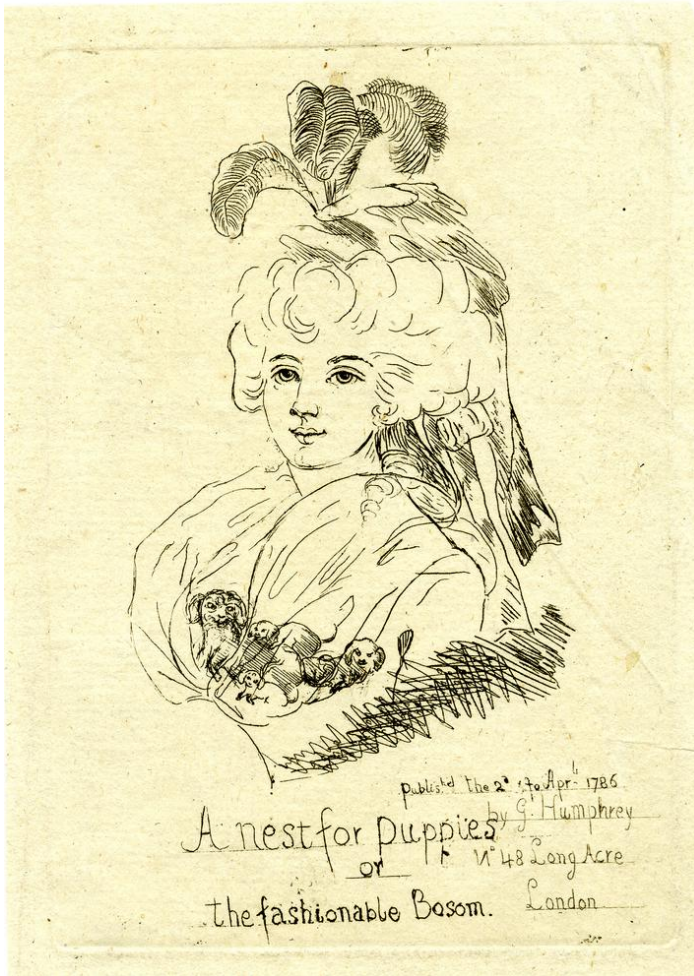 Publish.ᵉᵈ the 2ᵈ Aprˡˡ 1786
by G. Humphrey
N° 48 Long Acre
London
A nest for puppies
or
the fashionable Bosom.